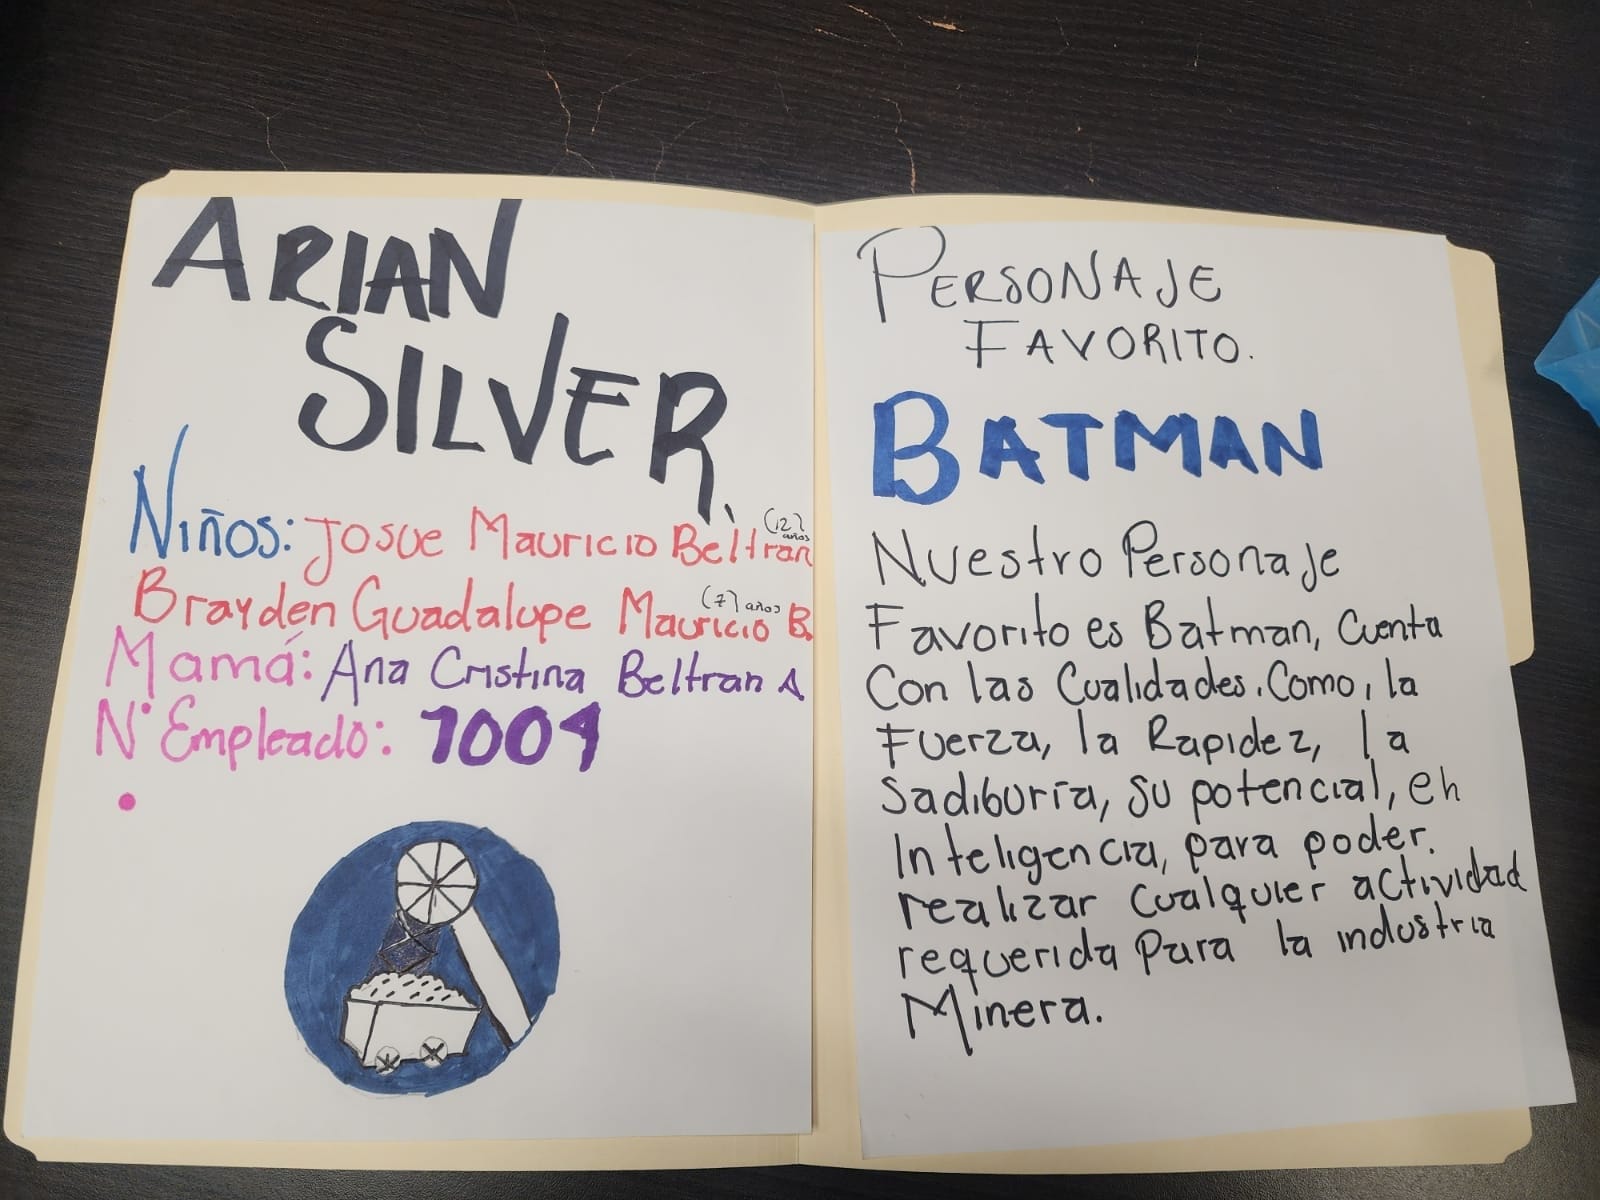 ARIAN
SILVER.
Niños: Josue Mauricio Beltran (12) años
Brayden Guadalupe Mauricio B. (7) años
Mamá: Ana Cristina Beltran A
N° Empleado: 1009
PERSONAJE
FAVORITO.
BATMAN
Nuestro Personaje
Favorito es Batman, Cuenta
Con las Cualidades. Como, la
Fuerza, la Rapidez, la
Sadiburía, su potencial, en
Inteligencia, para poder.
realizar cualquier actividad
requerida para la industria
Minera.